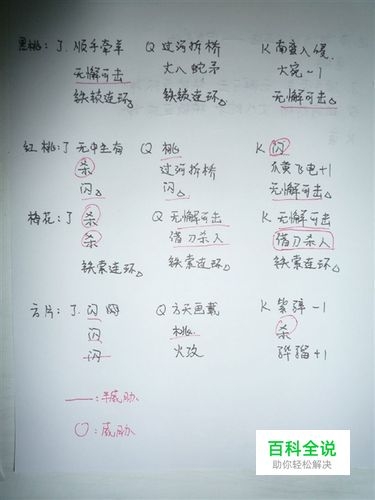 黑桃:J. 顺手牵羊 Q 过河拆桥 K 南蛮入侵
无懈可击 丈八蛇矛 大宛-1
铁锁连环△ 铁锁连环△ 无懈可击△
红桃:J 无中生有 Q 桃 K 闪
杀 过河拆桥 爪黄飞电+1
闪△ 闪△ 无懈可击△
梅花:J 杀 Q 无懈可击 K 无懈可击
杀 借刀杀人 借刀杀人
铁索连环△ 铁索连环△ 铁索连环△
方片:J. 闪 闪 Q 方天画戟 K 紫骍-1
闪 桃 杀
闪 火攻 骅骝+1
——:半威胁
○:威胁
百科全说
助你轻松解决